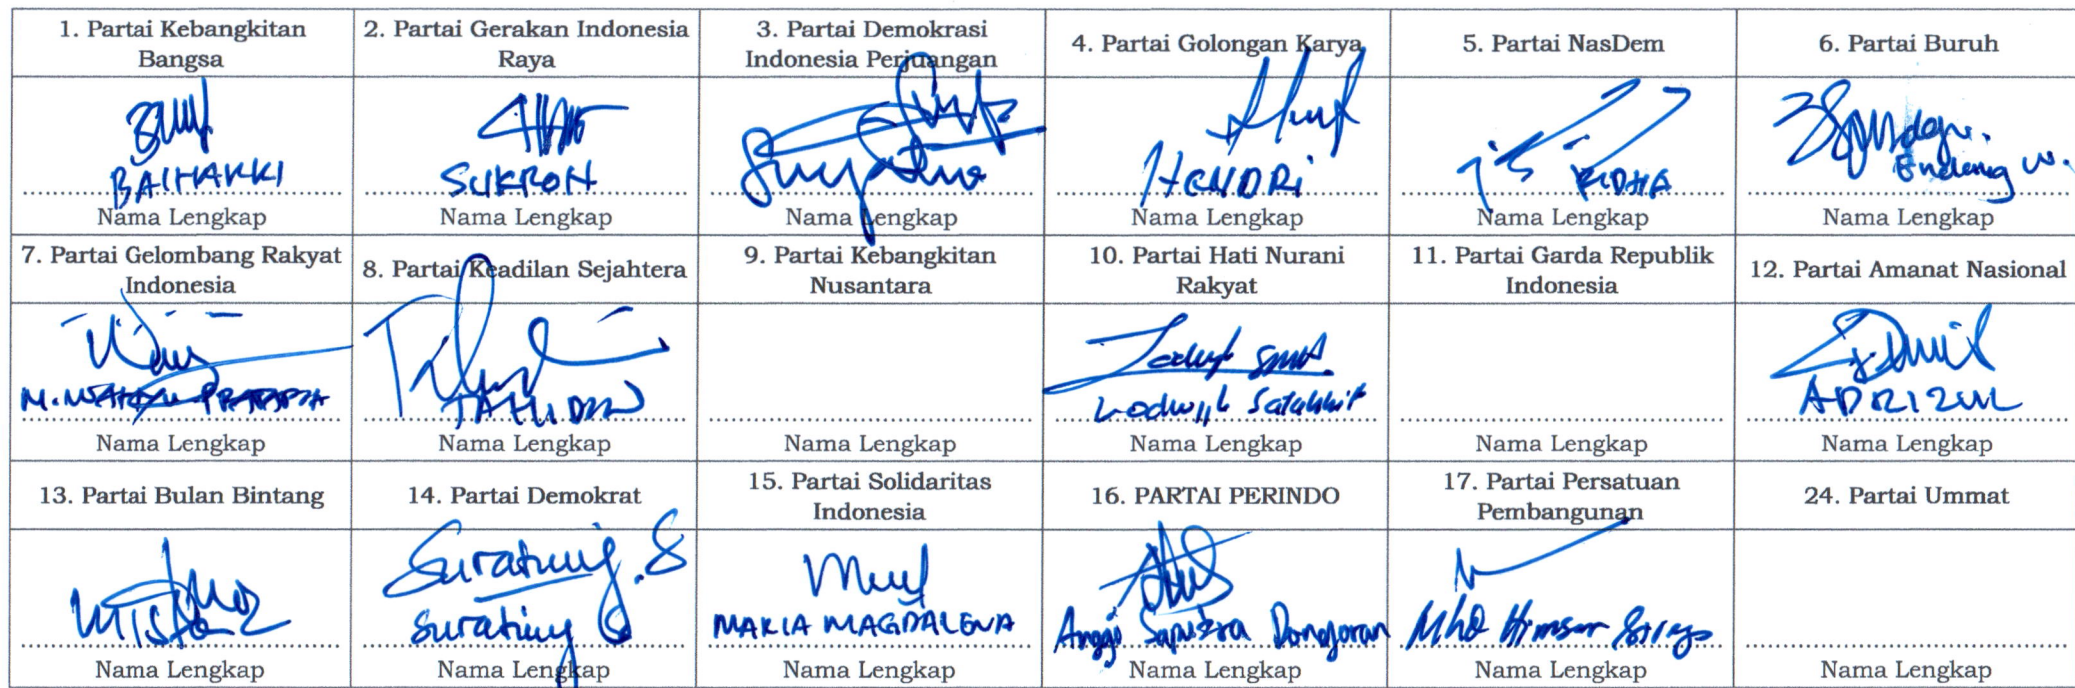 1. Partai Kebangkitan
Bangsa
2. Partai Gerakan Indonesia
Raya
3. Partai Demokrasi
Indonesia Perjuangan
4. Partai Golongan Karya
5. Partai NasDem
6. Partai Buruh
BAIHAKKI
SUKRON
HENDRI
RIDHA
Endang W.
Nama Lengkap
Nama Lengkap
Nama Lengkap
Nama Lengkap
Nama Lengkap
Nama Lengkap
7. Partai Gelombang Rakyat
Indonesia
8. Partai Keadilan Sejahtera
9. Partai Kebangkitan
Nusantara
10. Partai Hati Nurani
Rakyat
11. Partai Garda Republik
Indonesia
12. Partai Amanat Nasional
ADRIZUL
Nama Lengkap
Nama Lengkap
Nama Lengkap
Nama Lengkap
Nama Lengkap
Nama Lengkap
13. Partai Bulan Bintang
14. Partai Demokrat
15. Partai Solidaritas
Indonesia
16. PARTAI PERINDO
17. Partai Persatuan
Pembangunan
24. Partai Ummat
MARIA MAGDALENA
Anggi Saputra Dongoran
Nama Lengkap
Nama Lengkap
Nama Lengkap
Nama Lengkap
Nama Lengkap
Nama Lengkap